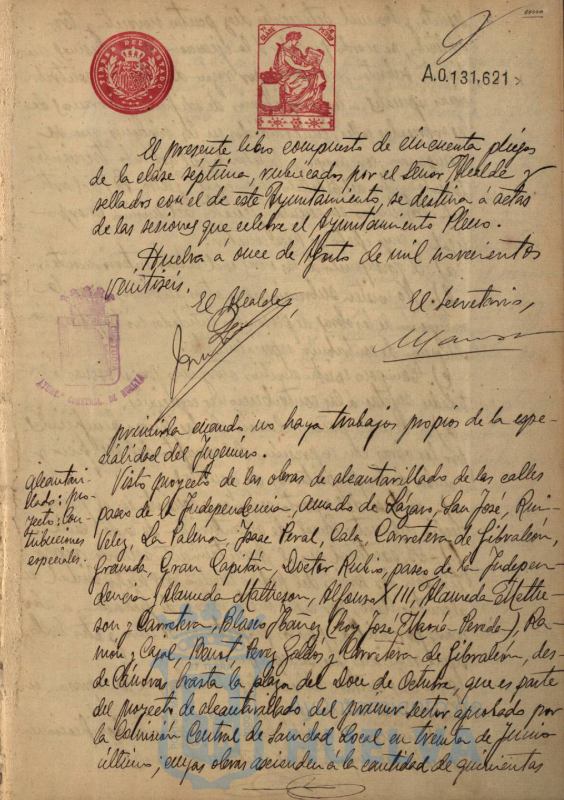 TIMBRE DEL ESTADO
A.0.131,621
El presente libro compuesto de cincuenta pliegos
de la clase séptima, rubricados por el señor Alcalde y
sellados con el de este Ayuntamiento, se destina á actas
de las sesiones que celebre el Ayuntamiento Pleno.
Huelva á once de Agosto de mil novecientos
veintiseis.
El Alcalde,
El Secretario,
cuando no haya trabajos propios de la espe-
cialidad del Ingeniero.
alcantari-
llado: pro-
yecto: Con-
tribuciones
especiales.
Visto proyecto de las obras de alcantarillado de las calles
paseo de la Independencia, Amado de Lázaro, San José, Ruiz
Velez, La Palma, Isaac Peral, Cala, Carretera de Gibraleón,
Granada, Gran Capitán, Doctor Rubio, paseo de la Indepen-
dencia, Alameda Matheson, Alfonso XIII, Alameda Mathe-
son y Carretera, Blasco Ibáñez (hoy José Maria Pereda), Ra-
món y Cajal, Perez Galdós y Carretera de Gibraleón, des-
de Cánovas hasta la plaza del Doce de Octubre, que es parte
del proyecto de alcantarillado del primer sector aprobado por
la Comisión Central de Sanidad Local en treinta de Junio
último; cuyas obras ascienden á la cantidad de quinientas